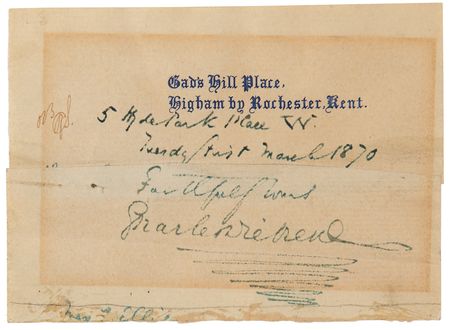 Gad's Hill Place,
Higham by Rochester, Kent.
5 Hyde Park Place W.
Tuesday first March 1870
Faithfully yours
Charles Dickens
Ellis